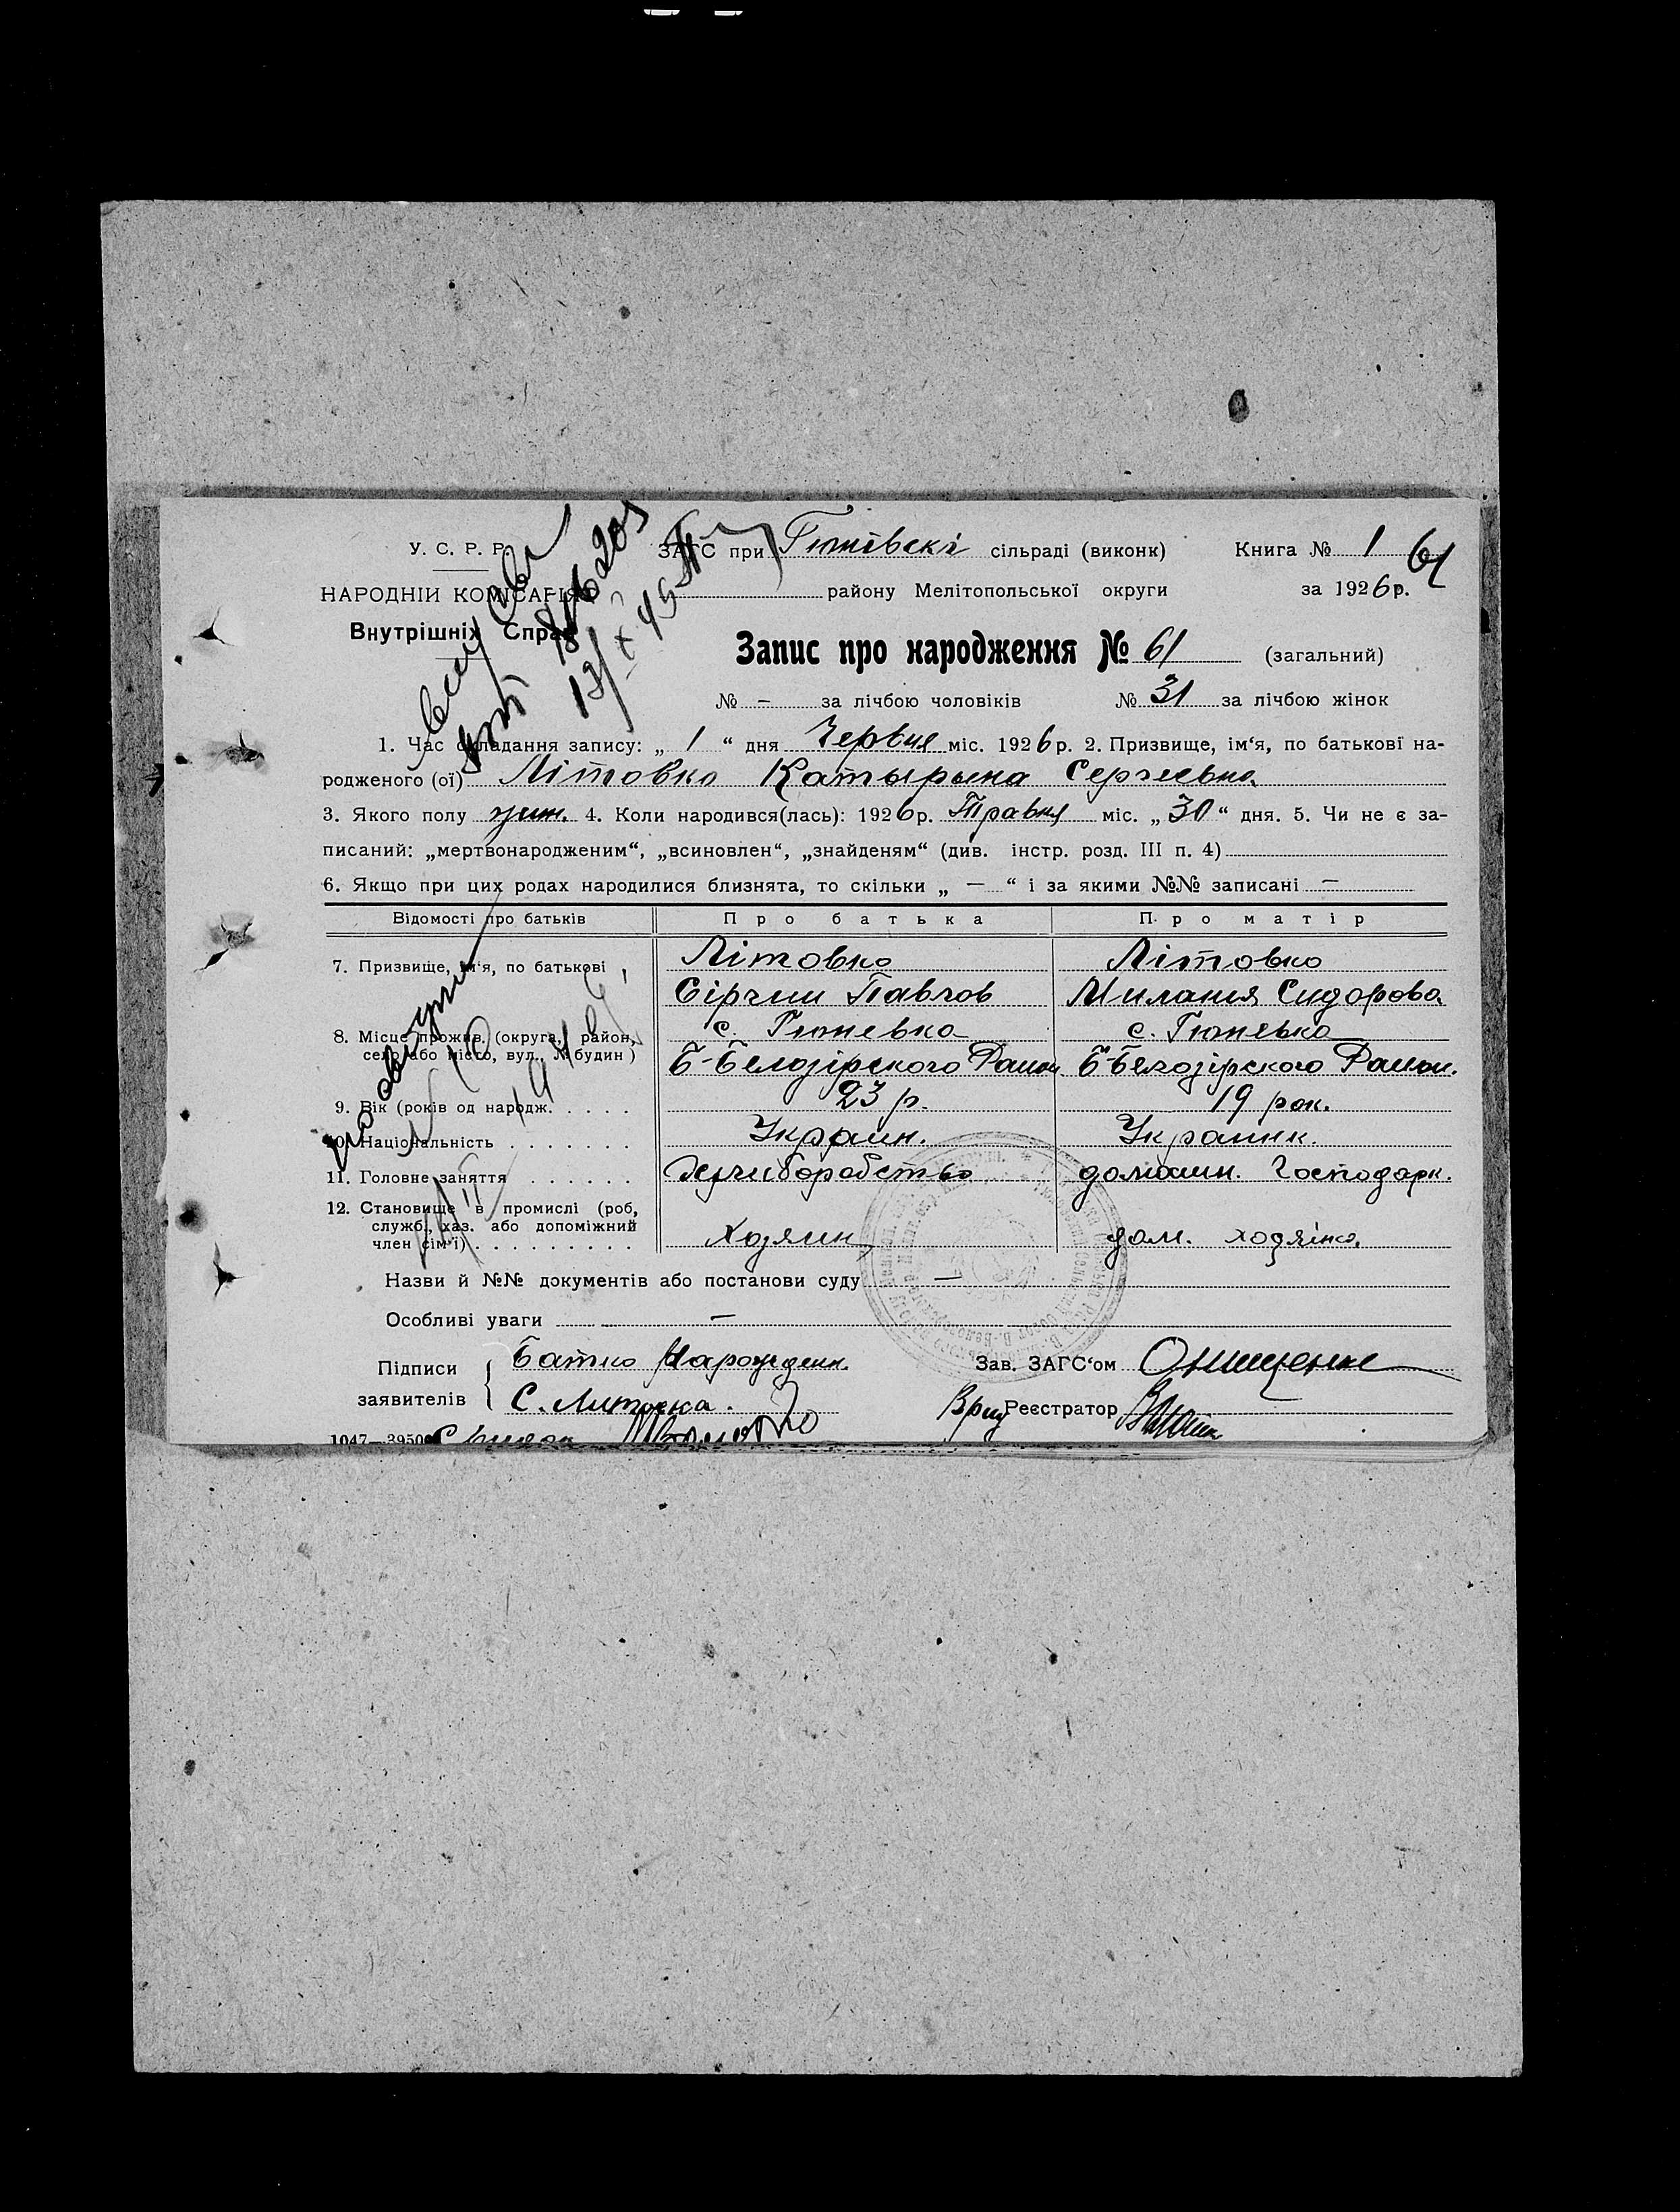 У. С. Р. Р.
НАРОДНІЙ КОМІСАРІЯТ
Внутрішніх Справ
ЗАГС при Гюнівскі сільраді (виконк) Книга № 1 61
району Мелітопольської округи за 1926 р.
Запис про народження № 61 (загальний)
№ – за лічбою чоловіків № 31 за лічбою жінок
1. Час складання запису: „ 1 “ дня Червня міс. 1926 р. 2. Призвище, ім‘я, по батькові на-
родженого (ої) Літовка Катырына Сергеевна
3. Якого полу жин. 4. Коли народився(лась): 1926 р. Травня міс. „ 30 “ дня. 5. Чи не є за-
писаний: „мертвонародженим“, „всиновлен“, „знайденям“ (див. інстр. розд. III п. 4)
6. Якщо при цих родах народилися близнята, то скільки „ — “ і за якими №№ записані —
Відомості про батьків Про батька Про матір
7. Призвище, ім‘я, по батькові Літовка Літовка
Сіргии Павлов Милания Сидорова
8. Місце прожив. (округа, район, с. Гюневка с. Гюневка
село або місто, вул., № будин) Б-Белозірского Раион Б-Белозірского Раион.
9. Вік (років од народж. 23 р. 19 рок.
10. Національність Украин. Украинк.
11. Головне заняття Хлиборобство домашн. Господарк.
12. Становище в промислі (роб,
служб., хаз. або допоміжний
член сім‘ї) Хозяин дом. хозяіка
Назви й №№ документів або постанови суду —
Особливі уваги —
Підписи Батько Нарожденн. Зав. ЗАГС‘ом Онищенко
заявителів С. Литовка. Врид Реєстратор
1047—3950